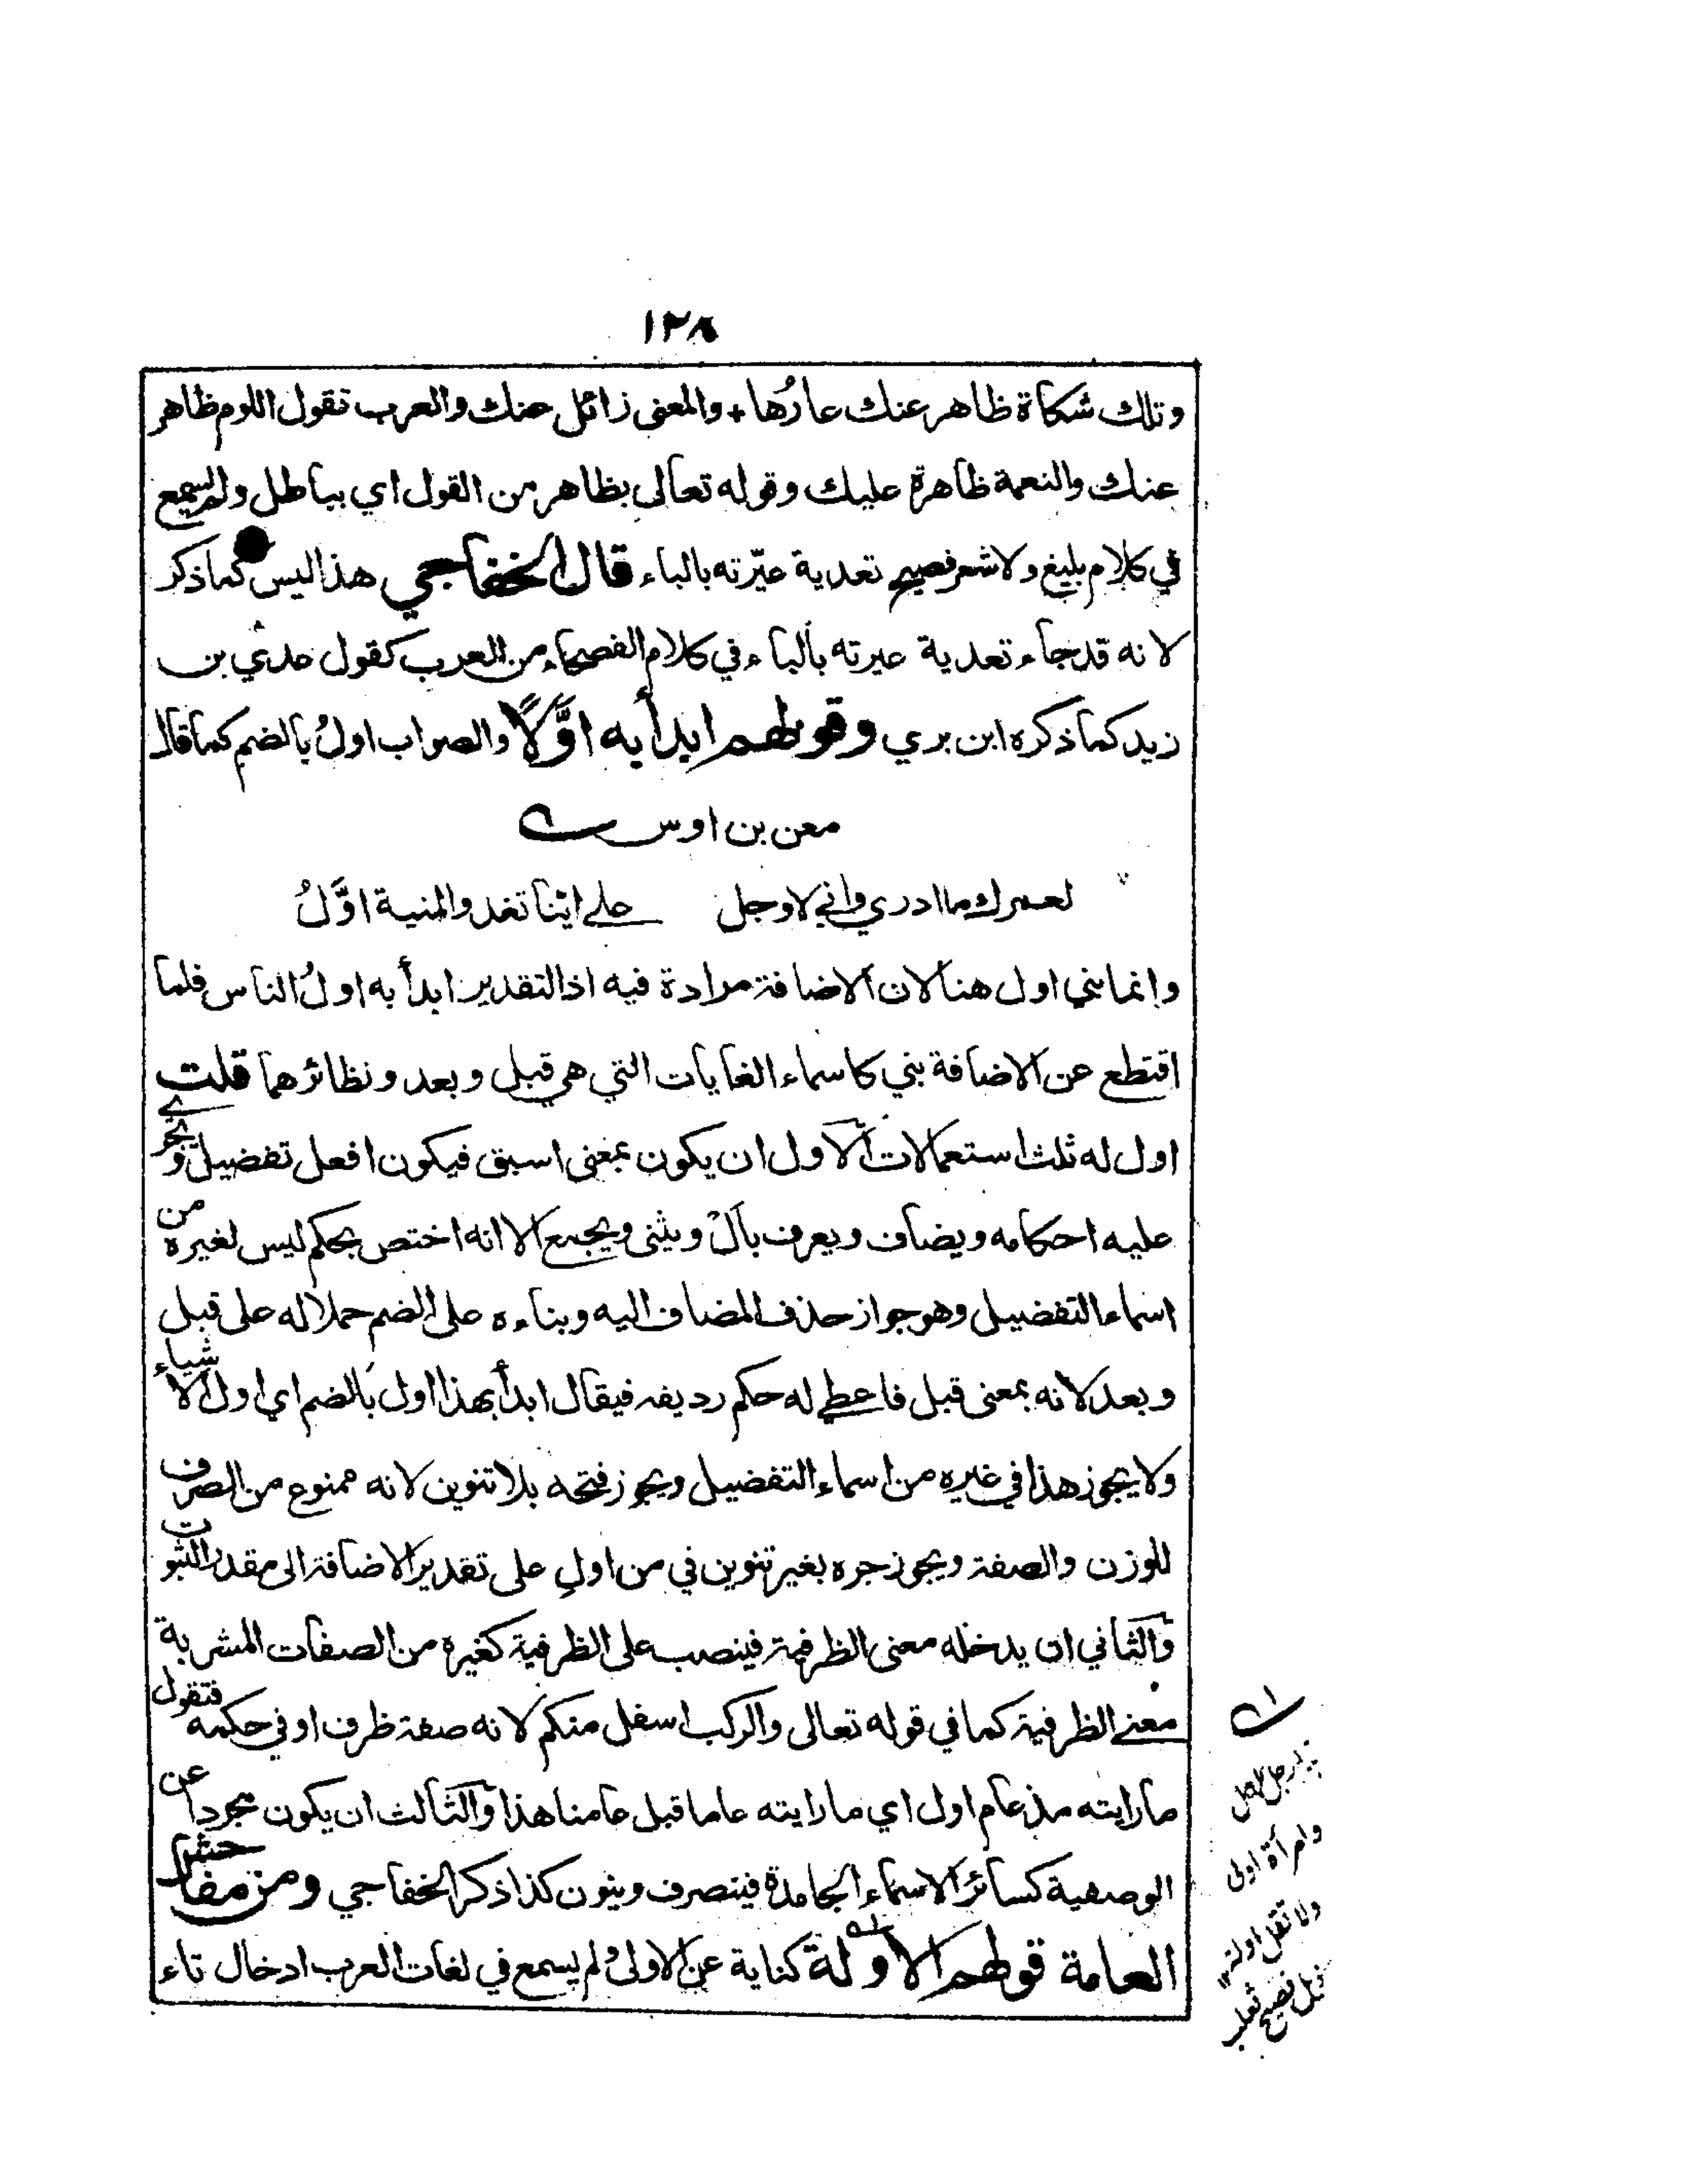 ١٢٨
وتلك شكاة ظاهر عنك عارُها + والمعنى زائل عنك والعرب تقول اللوم ظاهر
عنك والنعمة ظاهرة عليك وقوله تعالى بظاهر من القول اي بباطل ولم يسمع
في كلام بليغ ولا شعر فصيح تعدية عيّرته بالباء قال الخفاجي هذا ليس كما ذكر
لانه قد جاء تعدية عيرته بالباء في كلام الفصحاء من العرب كقول عدي بن
زيد كما ذكره ابن بري وقولهم ابدأ به اوّلًا والصواب اولُ بالضم كما قال
معن بن اوس
لعمرك ما ادري واني لاوجل على ايّنا تغدو المنية اوَّلُ
وإنما بني اول هنا لان الاضافة مرادة فيه اذ التقدير ابدأ به اولُ الناس فلما
اقتطع عن الاضافة بني كاسماء الغايات التي هي قبل وبعد ونظائرهما قلت
اول له ثلث استعمالات الاول ان يكون بمعنى اسبق فيكون افعل تفضيل ويجري
عليه احكامه ويضاف ويعرف بأَلْ ويثنى ويجمع الا انه اختص بحكم ليس لغيره من
اسماء التفضيل وهو جواز حذف المضاف اليه وبناءه على الضم حملا له على قبل
وبعد لانه بمعنى قبل فاعطي له حكم رديفه فيقال ابدأ بهذا اول بالضم اي اول الاشياء
ولا يجوز هذا في غيره من اسماء التفضيل ويجوز فتحه بلا تنوين لانه ممنوع من الصرف
للوزن والصفة ويجوز جره بغير تنوين في من اولِ على تقدير الاضافة الى مقدر الثبوت
والثاني ان يدخله معنى الظرفية فينصب على الظرفية كغيره من الصفات المشربة
معنى الظرفية كما في قوله تعالى والركب اسفل منكم لانه صفة ظرف او في حكمه فتقول
ما رايته مذ عام اول اي ما رايته عاما قبل عامنا هذا والثالث ان يكون مجرداً عن
الوصفية كسائر الاسماء الجامدة فينصرف وينون كذا ذكر الخفاجي ومن مفاحش
العامة قولهم الأوّلة كناية عن الاولى ولم يسمع في لغات العرب ادخال تاء
وامرأة اولى
ولا تقل اولة
ذيل فصيح ثعلب